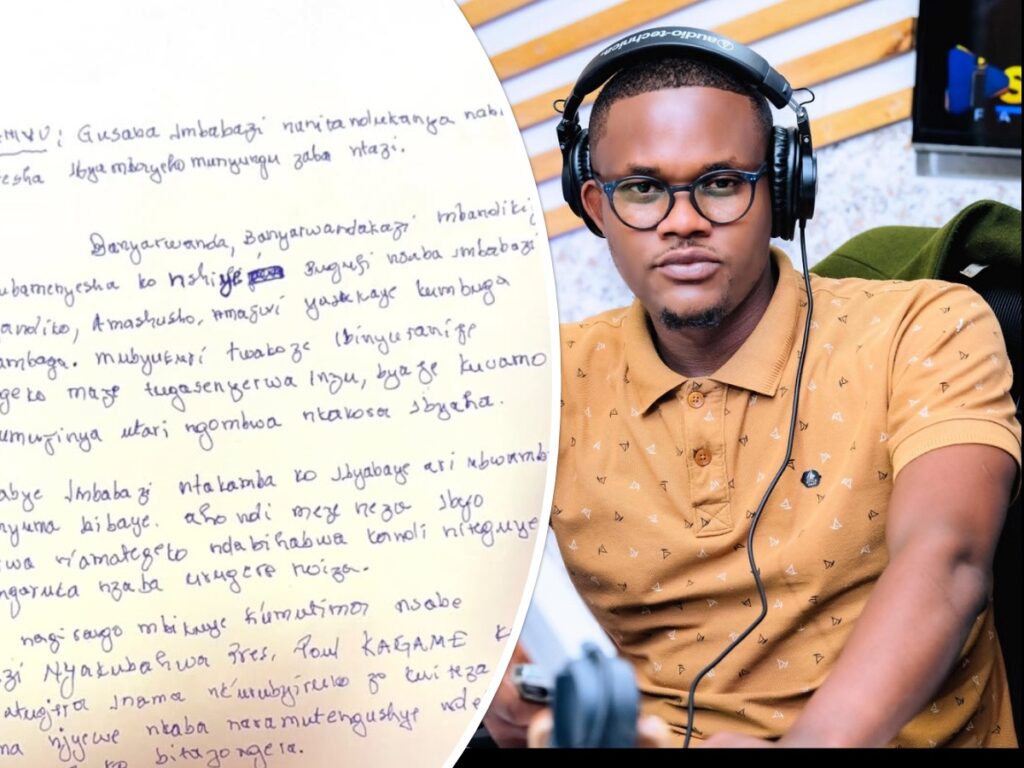 IMVU: Gusaba Imbabazi nanitandukanya nabi
esha ibyambonyeho munyungu zaba ntazi.
Banyarwanda, Banyarwandakazi mbandikiy
ubamenyesha ko nshiye bugufi nsaba imbabazi
andiko, Amashusho, Amajwi yasakaye kumbuga
ambaga. mubyukuri twakoze ibinyuranije
geko maze tugasenyerwa inzu, byaje kuvamo
umujinya utari ngombwa nkakora ibyaha.
abye Imbabazi ntakamba ko ibyabaye ari ubwambe
nyuma bibaye. aho ndi meze neza ibyo
wa n'amategeko ndabihabwa kandi niteguye
ngaruka nzaba urugero rwiza.
nagirango mbikuye k'umutima nsabe
zi NYAKUBAHWA Pres, Paul KAGAME K
atugira Inama nk'urubyiruko zo kwiteza
ma njyewe nkaba naramutengushye nde
ko bitazongera.
audio-technica
S
FA